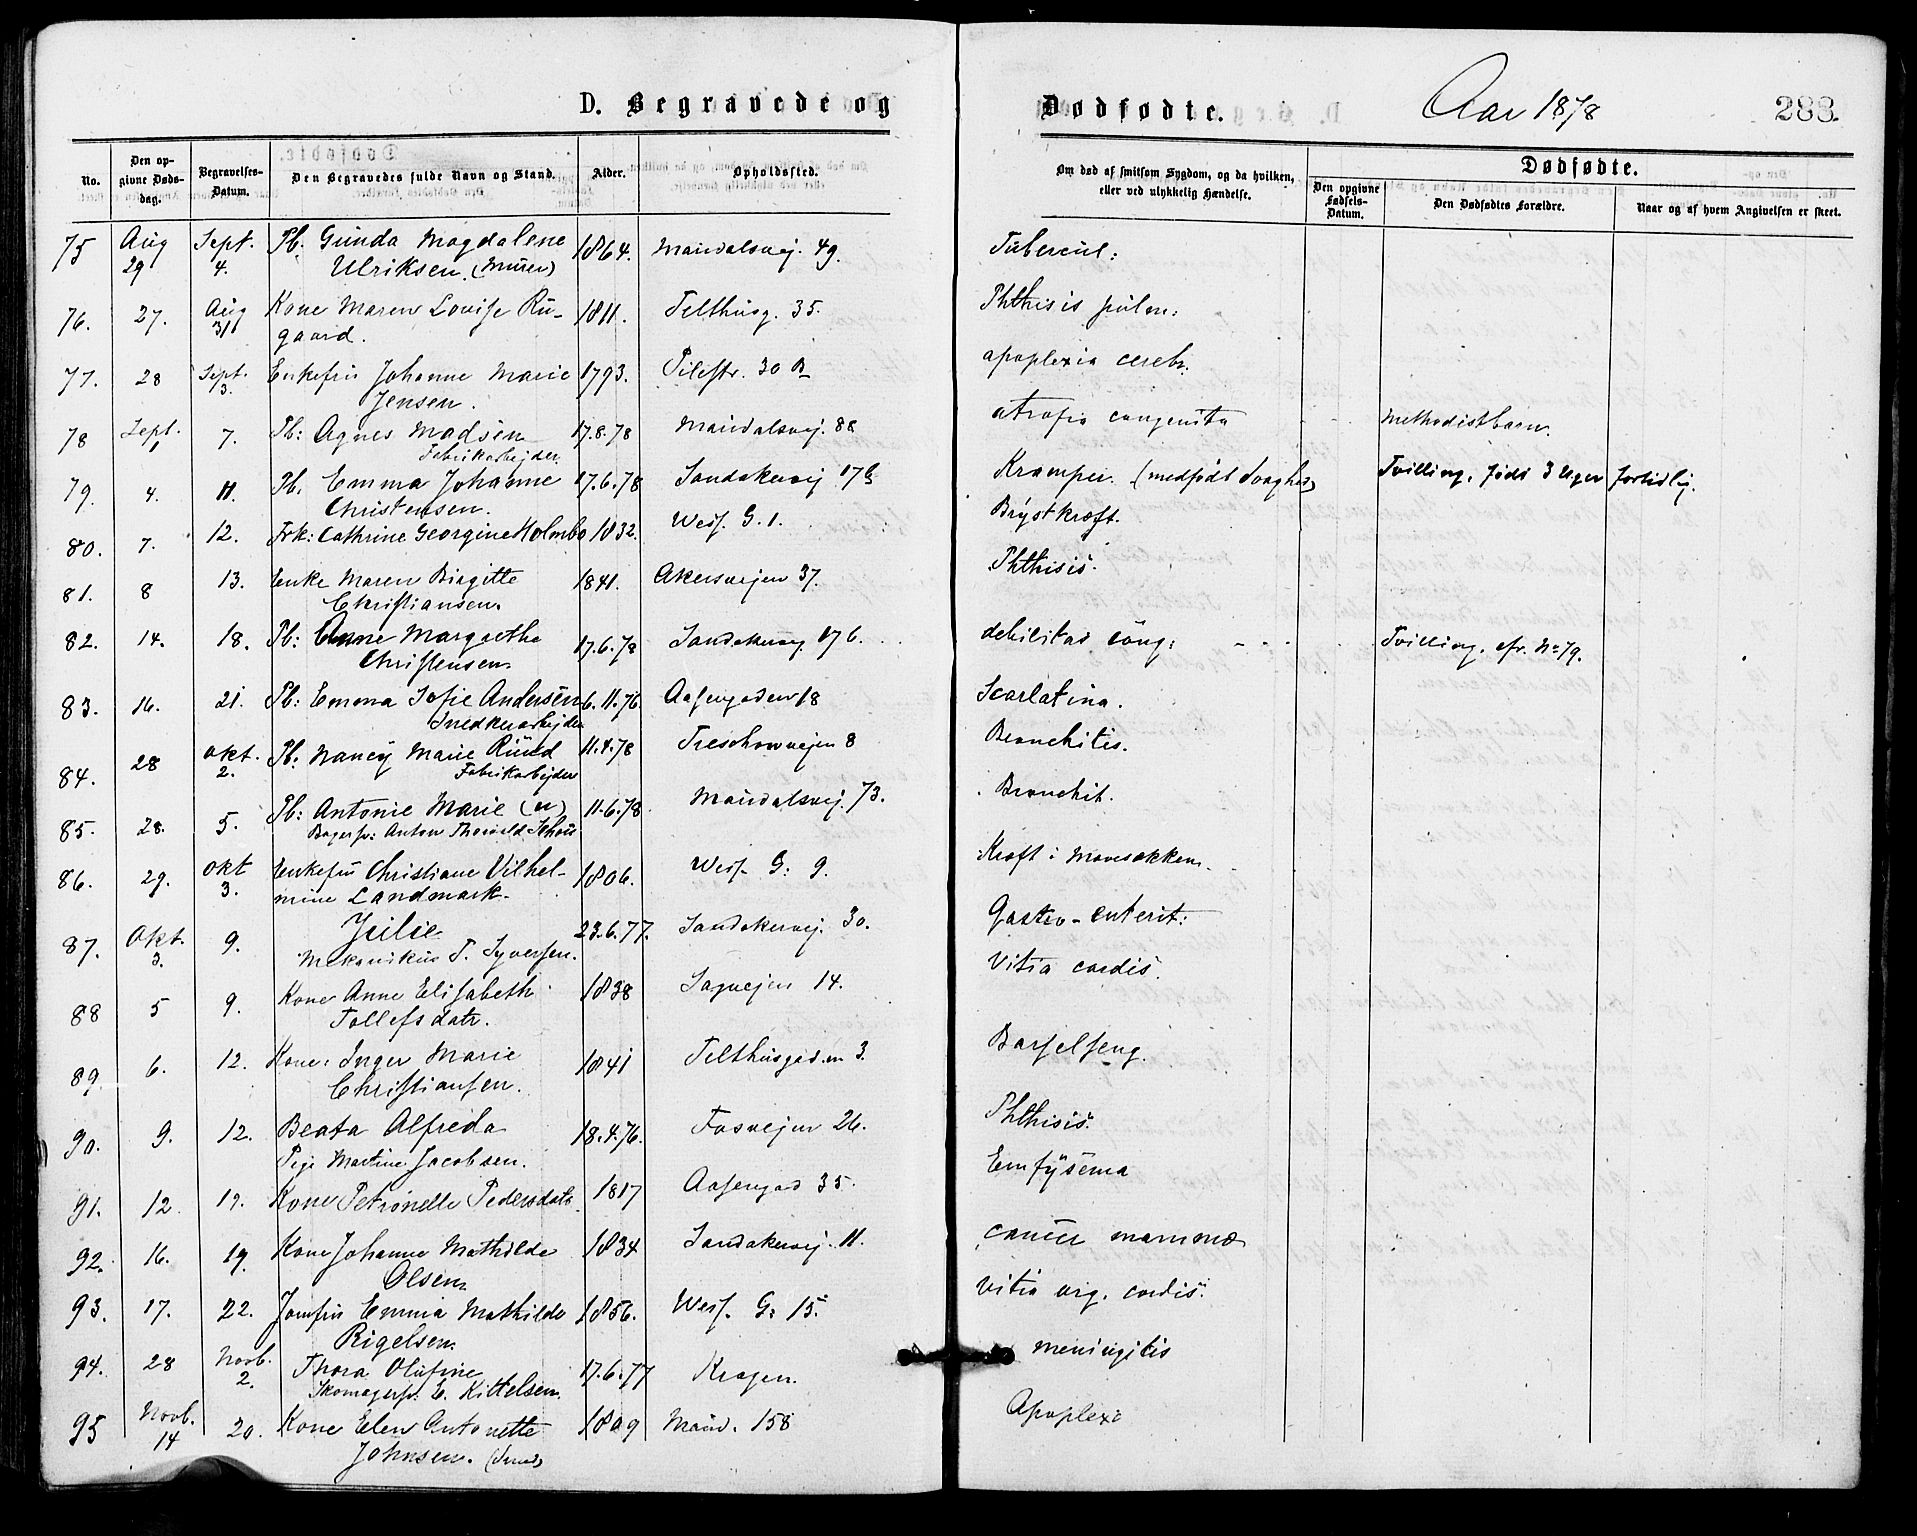 D. Begravede og
Dødfødte.
Aar 1878
283.
No.
Den opgivne Dødsdag.
Begravelses-Datum.
Den Begravedes fulde Navn og Stand.
Alder.
Opholdssted.
Om død af smitsom Sygdom, og da hvilken, eller ved ulykkelig Hændelse.
Dødfødte.
Den opgivne Fødsels-Datum.
Den Dødfødtes Forældre.
Naar og af hvem Angivelsen er skeet.
75 Aug 29 Sept. 4. Pb. Gunda Magdalene 1864. Maridalsvej. 49. Tubercul:
Ulriksen. (Murer)
76. 27. Aug 31 Kone Maren Lovise Ru- 1811. Telthusg. 35. Phthisis pulm:
gaard.
77. 28 Sept. 3. Enkefru Johanne Marie 1793. Pilestr. 30 B apoplexia cerebr.
Jensen.
78 Sept. 1 7. Pb: Agnes Madsen 17.8.78 Maridalsvej. 88 atrofia congenita Methodistbarn.
Fabrikarbejder.
79. 4. 11. Pb. Emma Johanne 17.6.78 Sandakervej 176 Kramper. (medfødt Svaghed) Tvilling, født 3 Uger fortidlig.
Christensen.
80. 7. 12. Frk: Cathrine Georgine Holmbo 1832. Wess. G. 1. Brystkræft.
81. 8 13. Enke Maren Birgitte 1841. Akersvejen 37. Phthisis.
Christiansen.
82. 14. 18. Pb: Anne Margrethe 17.6.78 Sandakervej 176. debilitas cong: Tvilling, cfr. No 79.
Christensen
83. 16. 21. Pb: Emma Sofie Andersen 6.11.76. Aasengaden 18 Scarlatina.
Snedkerarbejder
84. 28 Okt. 2. Pb. Nancy Marie Rund 11.4.78 Treschowvejen 8 Bronchitis.
Fabrikarbejder
85. 28. 5. Pb: Antonie Marie (u) 11.6.78. Maridalsvej. 73. Bronchit.
Bagersv: Anton Thorvald Schou
86. 29. Okt 3. Enkefru Christiane Vilhel- 1806. Wess. G: 9. Kræft i Mavesækken.
mine Landmark.
87. Okt. 3. 9. Julie 23.6.77. Sandakervej. 30. Gastro-enterit:
Mekanikus T. Syversen.
88 5 9. Kone Anne Elisabeth 1838 Sagvejen 14. Vitia cordis.
Tollefsdatr.
89. 6. 12. Kone: Inger Marie 1841 Telthusgaden 3. Barselseng.
Christiansen.
90. 9. 12. Beata Alfreda 18.4.76. Fosvejen 26. Phthisis.
Pige Martine Jacobsen.
91. 12 19. Kone Petronelle Pedersdatr. 1817 Aasengad 35. Emfysema
92. 16. 19. Kone Johanne Mathilde 1834 Sandakervej. 11. cancer mammæ
Olsen
93. 17. 22. Jomfru Emma Mathilde 1856. Wess. G: 15. Vitia org. cordis.
Rigelsen
94. 28 Novb. 2. Thora Olufine 17.6.77 Kragen. meningitis
Skomagersv: E. Kittelsen.
95 Novb. 14 20. Kone Elen Antonette 1809 Marid. 158 Apoplexi
Johnsen.